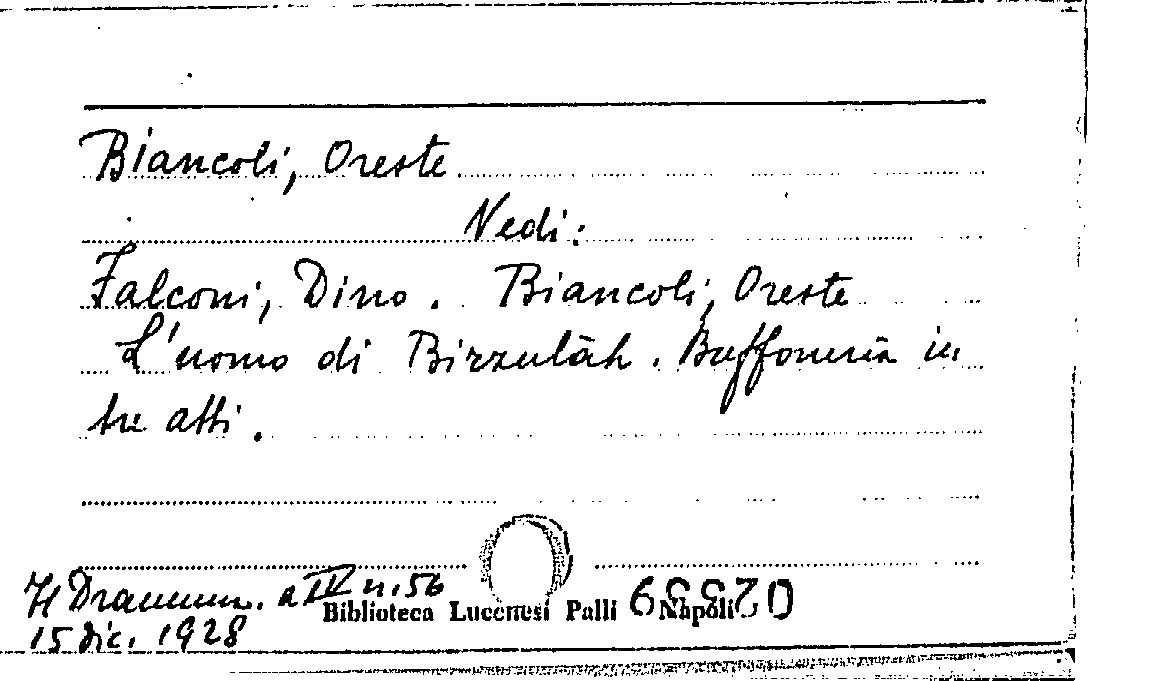 Biancoli, Oreste
Vedi:
Falconi, Dino. Biancoli, Oreste
L'uomo di Birzulàh. Buffoneria in
tre atti.
Il Dramm. a IV n. 56
15 dic. 1928
Biblioteca Lucchesi Palli Napoli